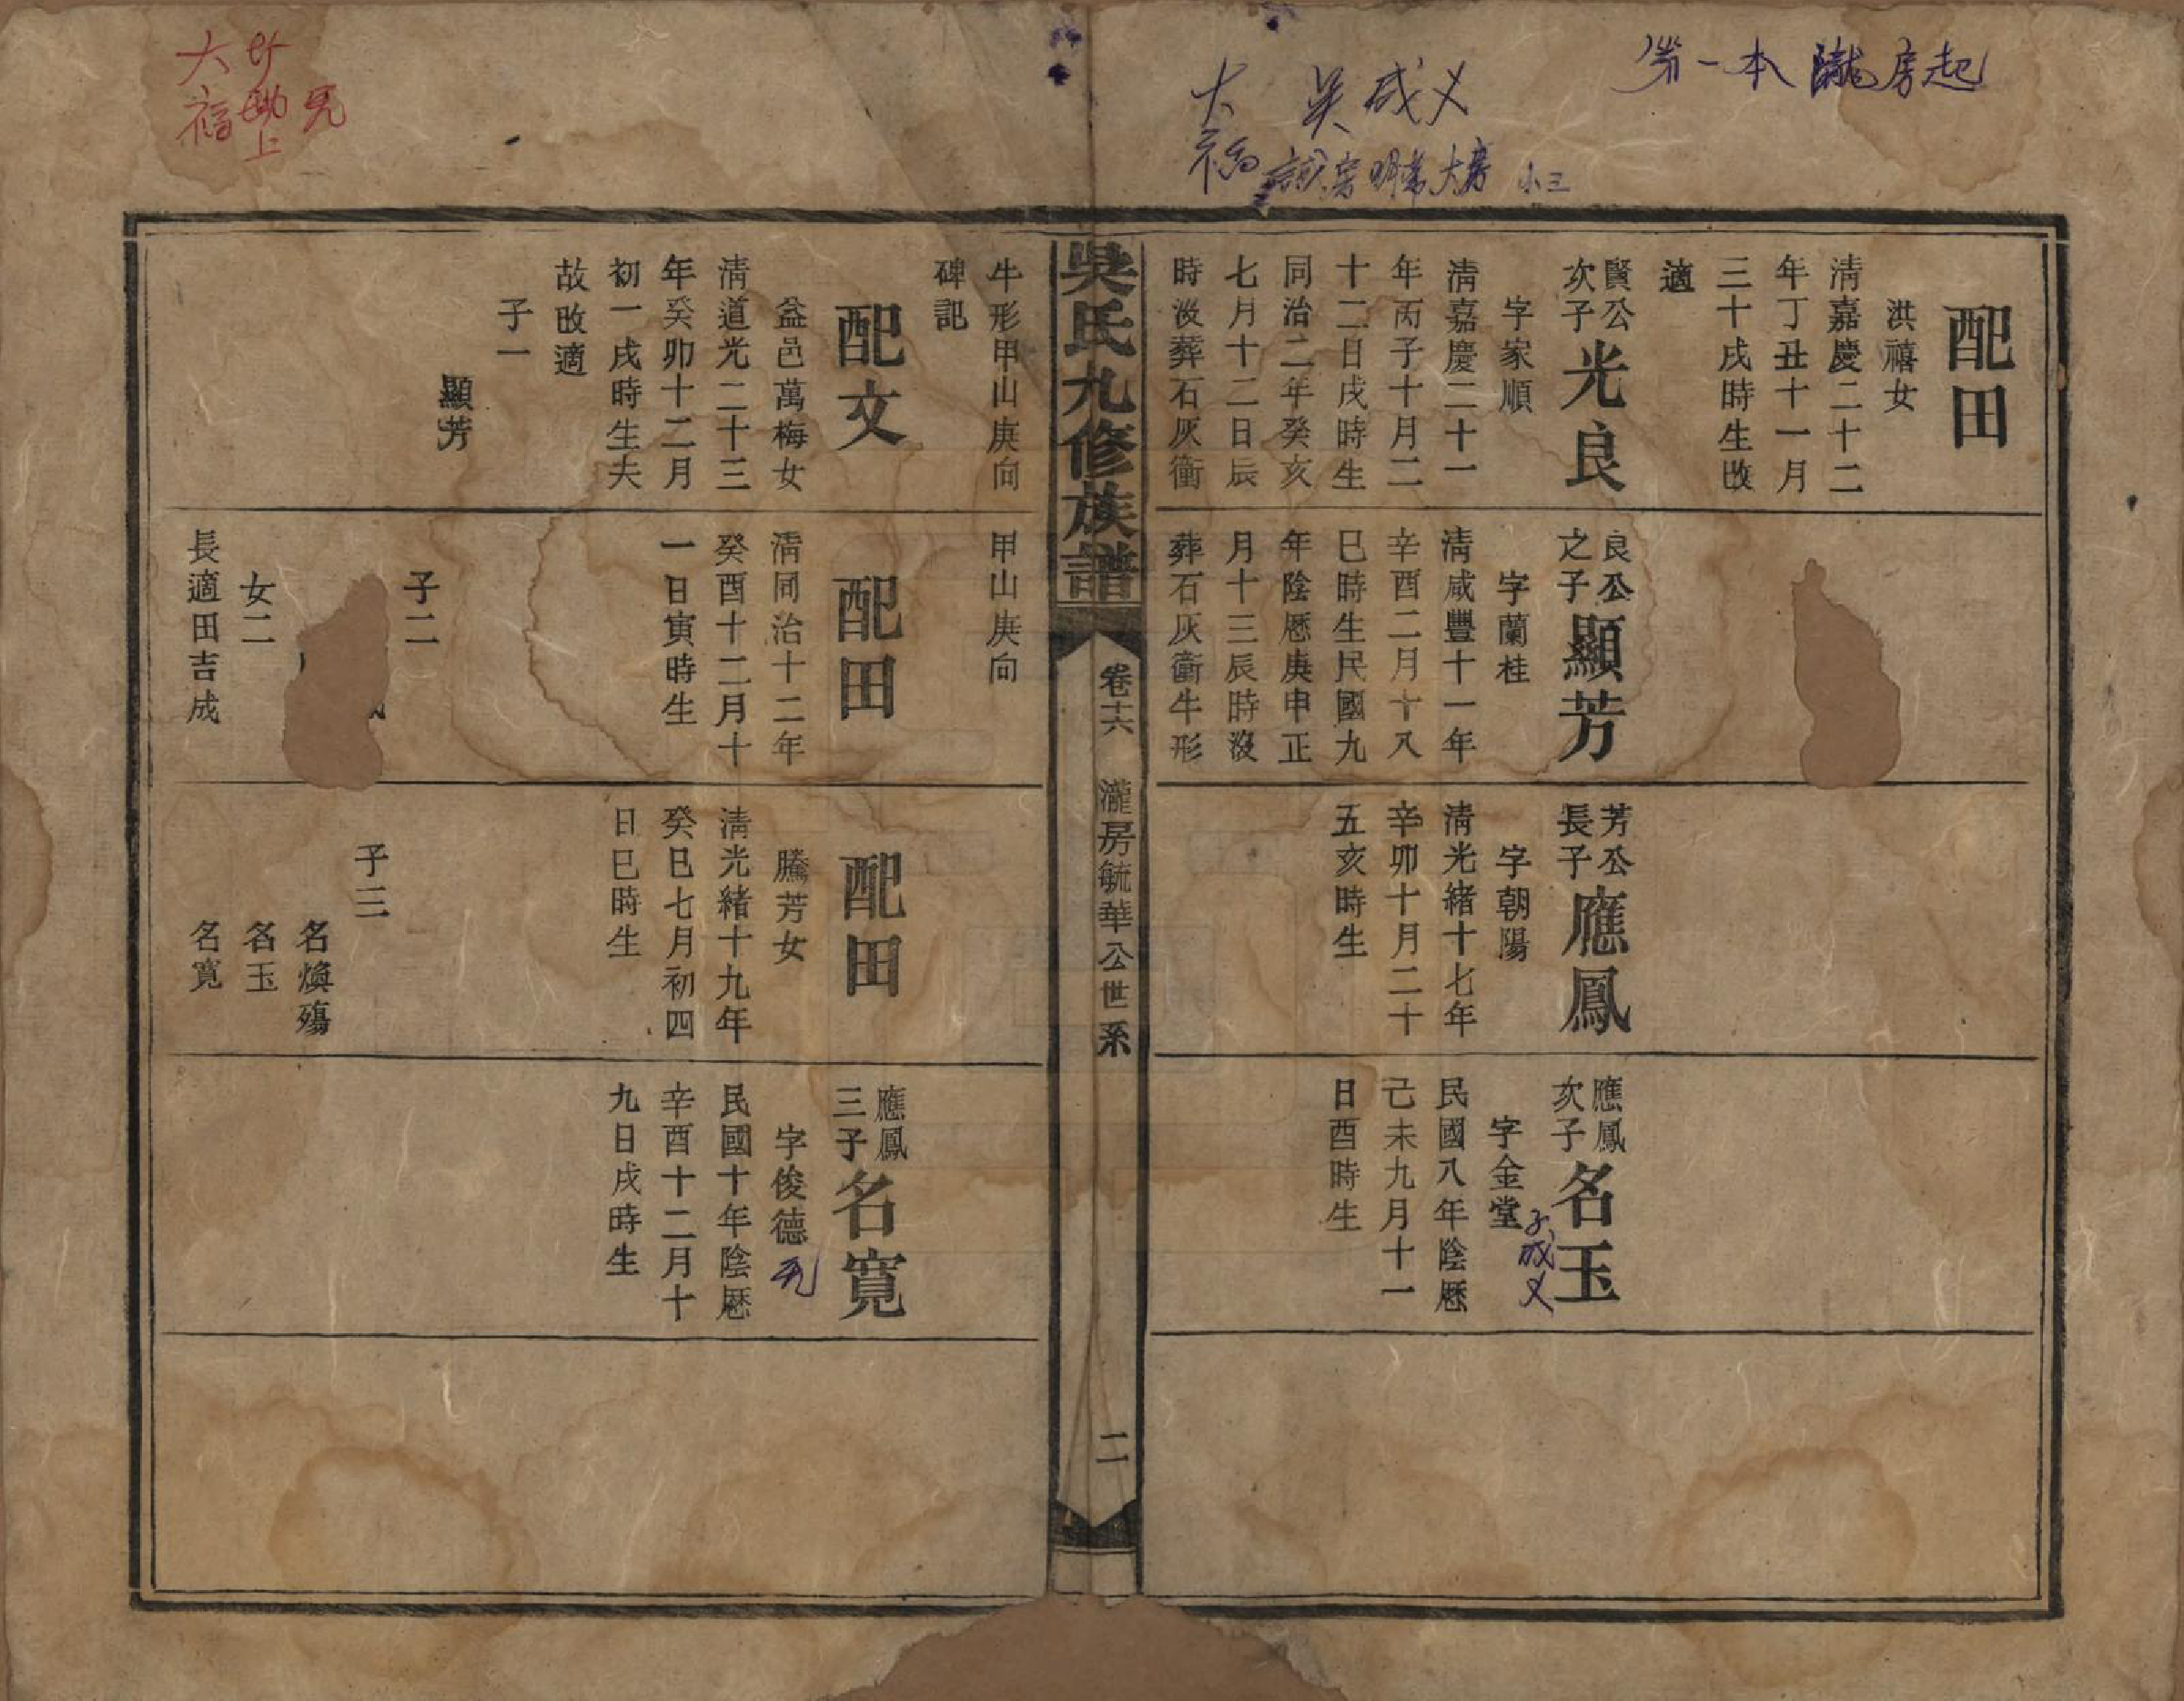 第一本瀧房起
吴成义
大福
誠房明常大房 小三
配田
洪禧女
淸嘉慶二十二
年丁丑十一月
三十戌時生改
適
賢公
次子
光良
字家順
淸嘉慶二十一
年丙子十月二
十二日戌時生
同治二年癸亥
七月十二日辰
時沒葬石灰衝
良公
之子
顯芳
字蘭桂
淸咸豐十一年
辛酉二月十八
巳時生民國九
年陰厯庚申正
月十三辰時沒
葬石灰衝牛形
芳公
長子
應鳳
字朝陽
淸光緒十七年
辛卯十月二十
五亥時生
應鳳
次子
名玉
子成义
字金堂
民國八年陰厯
己未九月十一
日酉時生
吳氏九修族譜
卷十六
瀧房毓華公世系
二
大福
牛形甲山庚向
碑記
配文
益邑萬梅女
淸道光二十三
年癸卯十二月
初一戌時生夫
故改適
子一
顯芳
甲山庚向
配田
淸同治十二年
癸酉十二月十
一日寅時生
子二
女二
長適田吉成
配田
騰芳女
淸光緒十九年
癸巳七月初四
日巳時生
子三
名煥殤
名玉
名寬
應鳳
三子
名寬
字俊德
民國十年陰厯
辛酉十二月十
九日戌時生